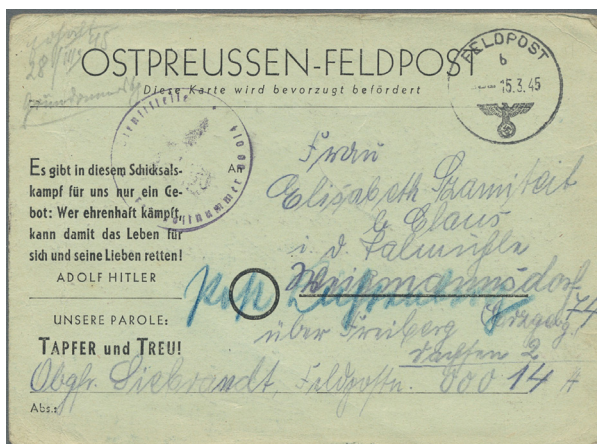 28
OSTPREUSSEN-FELDPOST
Diese Karte wird bevorzugt befördert
FELDPOST
b
15.3.45
Es gibt in diesem Schicksals-
kampf für uns nur ein Ge-
bot: Wer ehrenhaft kämpft,
kann damit das Leben für
sich und seine Lieben retten!
ADOLF HITLER
UNSERE PAROLE:
TAPFER und TREU!
An
Frau
Elisabeth
b Claus
i. d. Talmühle
Weigmannsdorf
über Freiberg
Sachsen 2
Obgfr. Siebrandt, Feldpostn. 00014 A
Abs.: